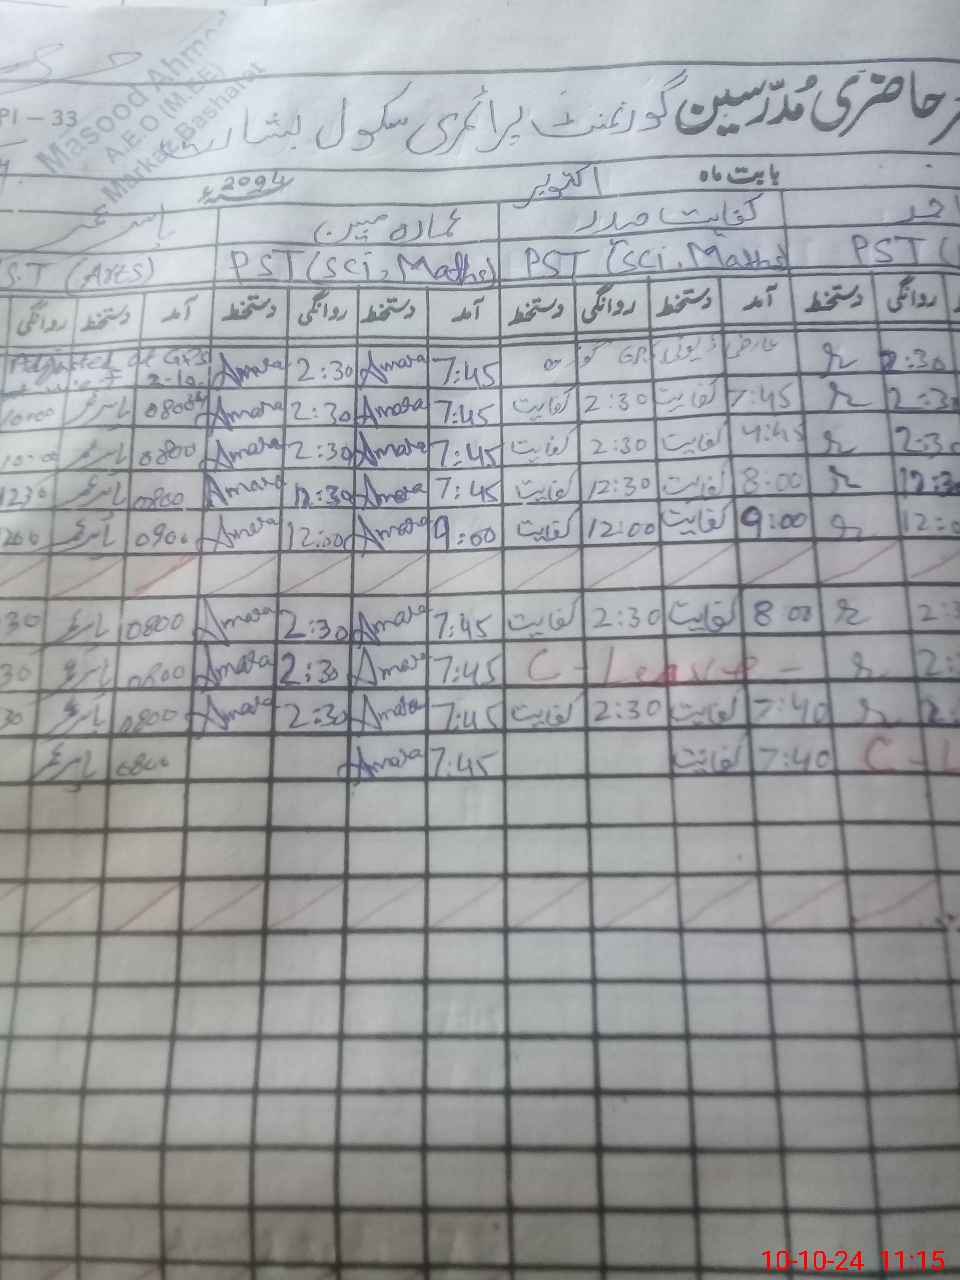 PI - 33
Masood Ahm
A.E.O (M.EE)
Markaz Basharat
حاضری مُدرّسین گورنمنٹ پرائمری سکول بشارت
بابت ماہ اکتوبر 2024
کفایت حیدر
PST (Sci, Maths) PST (Sci, Maths) S.T (Arts)
روانگی دستخط آمد دستخط روانگی دستخط آمد دستخط روانگی دستخط آمد دستخط روانگی
2:30 7:45 Amara 2:30 Amara Adjusted at GPS
2:30 7:45 کفایت 2:30 کفایت 7:45 Amara 2:30 Amara 0800 10:00
2:30 کفایت 2:30 کفایت 7:45 Amara 2:30 Amara 0800 10:00
12:30 8:00 کفایت 12:30 کفایت 7:45 Amara 12:30 Amara 0800 1230
12:0 9:00 کفایت 12:00 کفایت 9:00 Amara 12:00 Amara 0900 1200
2:3 8:00 کفایت 2:30 کفایت 7:45 Amara 2:30 Amara 0800 30
2: C - Leave - 7:45 Amara 2:30 Amara 0800 30
2: 7:40 کفایت 2:30 کفایت 7:45 Amara 2:30 Amara 0800 30
C - L 7:40 کفایت 7:45 Amara 0800
10-10-24 11:15